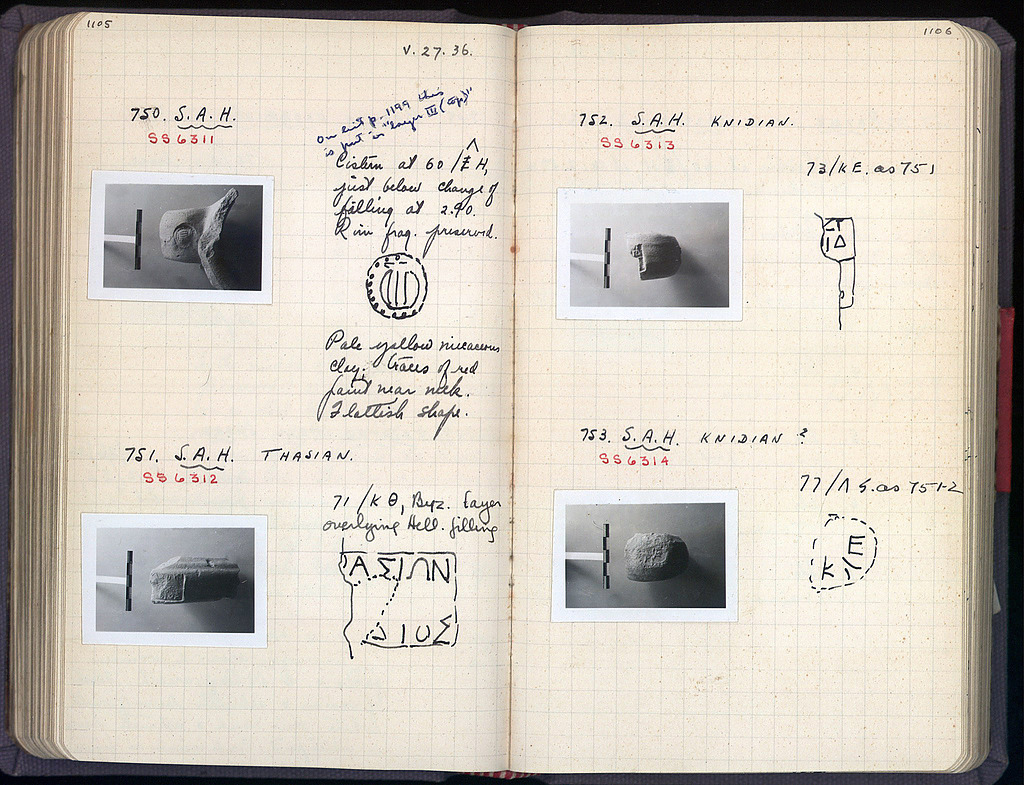 1105
V. 27. 36.
750. S. A. H.
SS 6311
on list p. 1199 this
is put in "Layer III (top)"
Cistern at 60/ΛΣ H,
just below change of
filling at 2.90.
Rim frag. preserved.
Pale yellow micaceous
clay; traces of red
paint near neck.
Flattish shape.
751. S. A. H. THASIAN.
SS 6312
71/Κ Θ, Byz. layer
overlying Hell. filling
ΑΣΙΩΝ
ΔΙΟΣ
1106
752. S. A. H. KNIDIAN.
SS 6313
73/ΚΕ. as 751
ΙΔ
753. S. A. H. KNIDIAN ?
SS 6314
77/Λ S. as 751-2
Ε
Κ